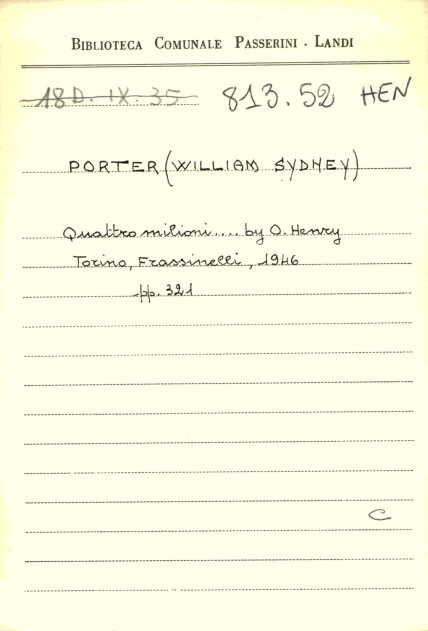 BIBLIOTECA COMUNALE PASSERINI - LANDI
18D. IX. 35 813.52 HEN
PORTER (WILLIAM SYDNEY)
Quattro milioni.... by O. Henry
Torino, Frassinelli, 1946
pp. 321
C